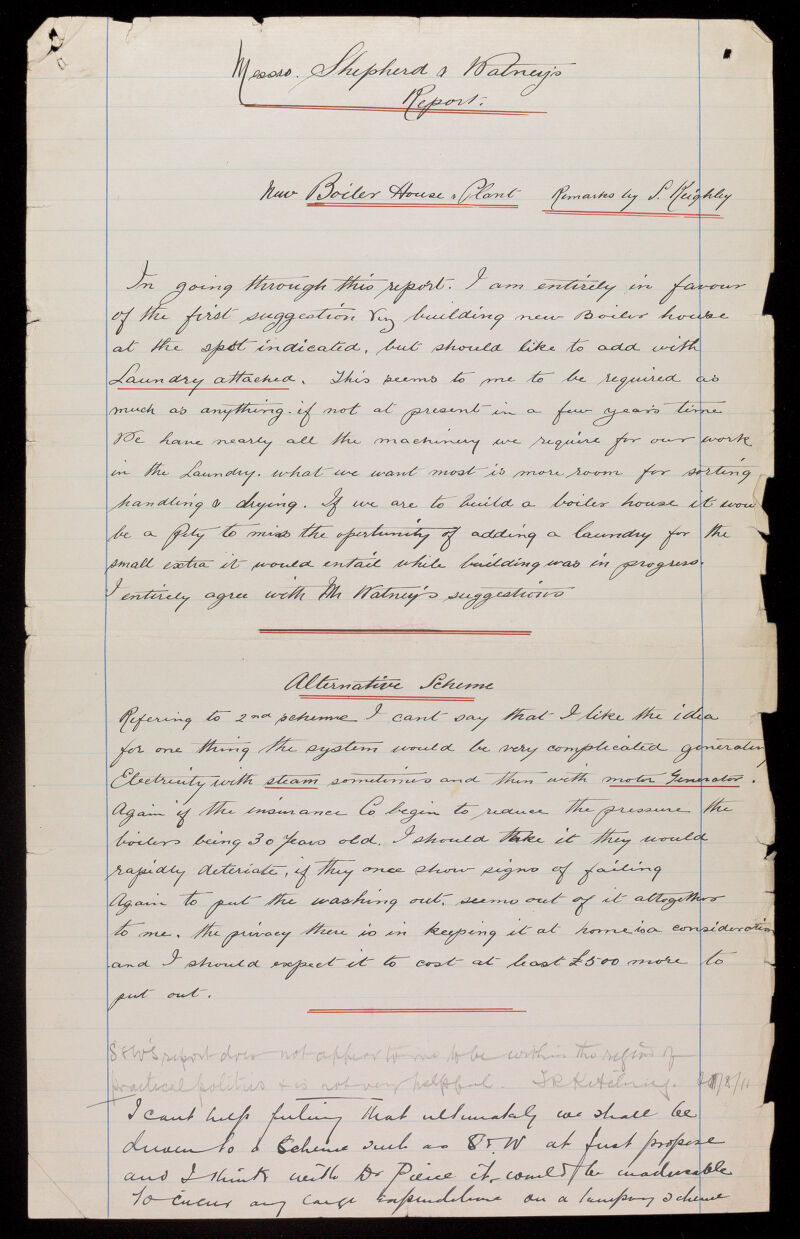 Messrs. Shepherd & Watney's
Report.
New Boiler House & Plant Remarks by S. Keighley
In going through this report. I am entirely in favour
of the first suggestion viz building new Boiler house
at the spot indicated, but should like to add with
Laundry attached. This seems to me to be required as
much as anything. if not at present in a few years time
We have nearly all the machinery we require for our work
in the Laundry. what we want most is more room for sorting
handling & drying. If we are to build a boiler house it wou
be a pity to miss the opertunity of adding a laundry for the
small extra it would entail while building was in progress.
I entirely agree with Mr Watney's suggestions
Alternative Scheme
Refering to 2nd scheme I cant say that I like the idea
for one thing the system would be very complicated generating
Electricity with steam sometimes and then with motor Generator.
Again if the insurance Co begin to reduce the pressure the
boilers being 30 years old. I should take it they would
rapidly deteriate, if they once show signs of failing
Again to put the washing out. seems out of it altogether
to me. the privacy there is in keeping it at home is a consideration
and I should expect it to cost at least £500 more to
put out.
S & W's report does not appear to me to be within the region of
practical politics & is not very helpful. 8/11
I cant help feeling that ultimately we shall be
driven to a Scheme such as S & W at first propose
and I think with Dr Pierce it would be inadvisable
to incur any large expenditure on a temporary scheme